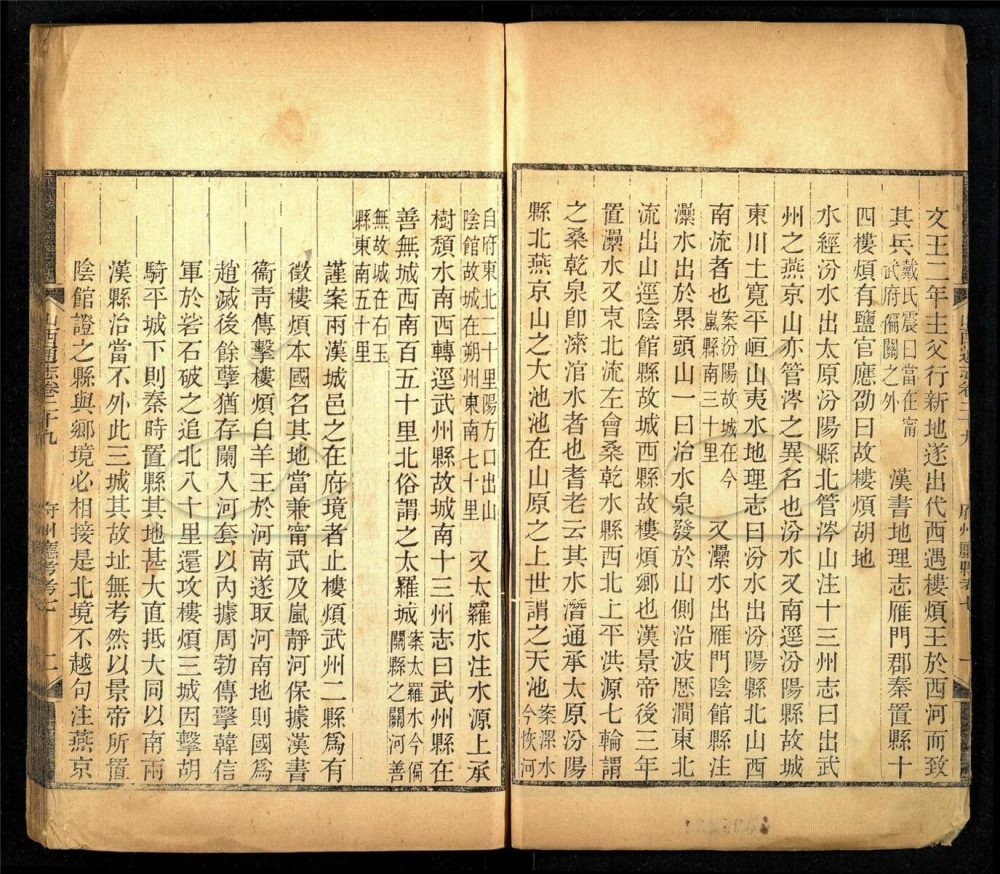 文王二年主父行新地遂出代西遇樓煩王於西河而致
其兵戴氏震曰當在甯武府偏關之外　漢書地理志雁門郡秦置縣十
四樓煩有鹽官應劭曰故樓煩胡地
水經汾水出太原汾陽縣北管涔山注十三州志曰出武
州之燕京山亦管涔之異名也汾水又南逕汾陽縣故城
東川土寬平峘山夷水地理志曰汾水出汾陽縣北山西
南流者也案汾陽故城在今嵐縣南三十里　又灅水出雁門陰館縣注
灅水出於累頭山一曰治水泉發於山側沿波歷澗東北
流出山逕陰館縣故城西縣故樓煩鄉也漢景帝後三年
置灅水又東北流左會桑乾水縣西北上平洪源七輪謂
之桑乾泉卽溹涫水者也耆老云其水潛通承太原汾陽
縣北燕京山之大池池在山原之上世謂之天池案灅水今恢河
自府東北二十里陽方口出山陰館故城在朔州東南七十里　又太羅水注水源上承
樹頹水南西轉逕武州縣故城南十三州志曰武州縣在
善無城西南百五十里北俗謂之太羅城案太羅水今偏關縣之關河善
無故城在右玉縣東南五十里
謹案兩漢城邑之在府境者止樓煩武州二縣爲有
徵樓煩本國名其地當兼甯武及嵐靜河保據漢書
衞靑傳擊樓煩白羊王於河南遂取河南地則國爲
趙滅後餘孽猶存闌入河套以內據周勃傳擊韓信
軍於硰石破之追北八十里還攻樓煩三城因擊胡
騎平城下則秦時置縣其地甚大直抵大同以南兩
漢縣治當不外此三城其故址無考然以景帝所置
陰館證之縣與鄉境必相接是北境不越句注燕京
山西通志卷二十九　府州廳縣考七　二